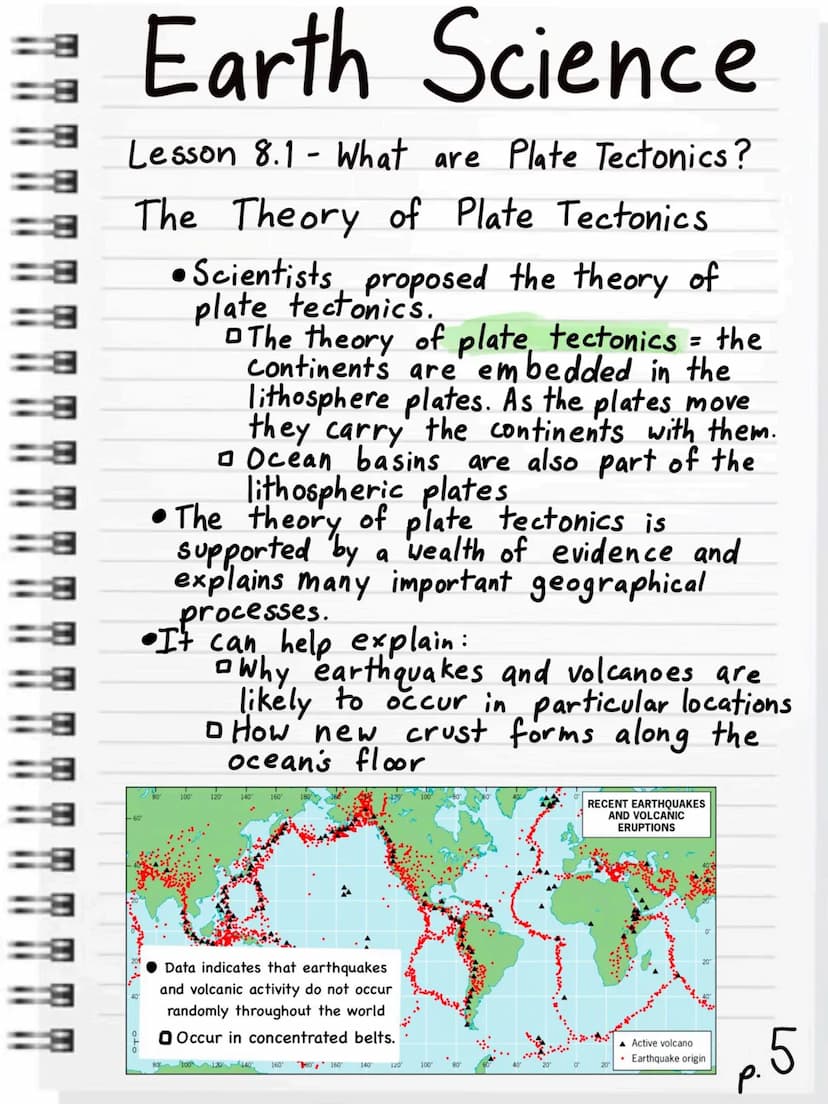 Earth Science
Lesson 8.1 - What are Plate Tectonics?
The Theory of Plate Tectonics
• Scientists proposed the theory of
plate tectonics.
□ The theory of plate tectonics = the
continents are embedded in the
lithosphere plates. As the plates move
they carry the continents with them.
□ Ocean basins are also part of the
lithospheric plates
• The theory of plate tectonics is
supported by a wealth of evidence and
explains many important geographical
processes.
• It can help explain:
□ Why earthquakes and volcanoes are
likely to occur in particular locations
□ How new crust forms along the
ocean's floor
80° 100° 120° 140° 160° 180° 160° 120° 100° 80° 60° 40° 0°
RECENT EARTHQUAKES
AND VOLCANIC
ERUPTIONS
60°
40°
20°
0°
20°
40°
• Data indicates that earthquakes
and volcanic activity do not occur
randomly throughout the world
□ Occur in concentrated belts.
▲ Active volcano
• Earthquake origin
80° 100° 120° 140° 160° 180° 160° 140° 120° 100° 80° 60° 40° 20° 0° 20°
p. 5